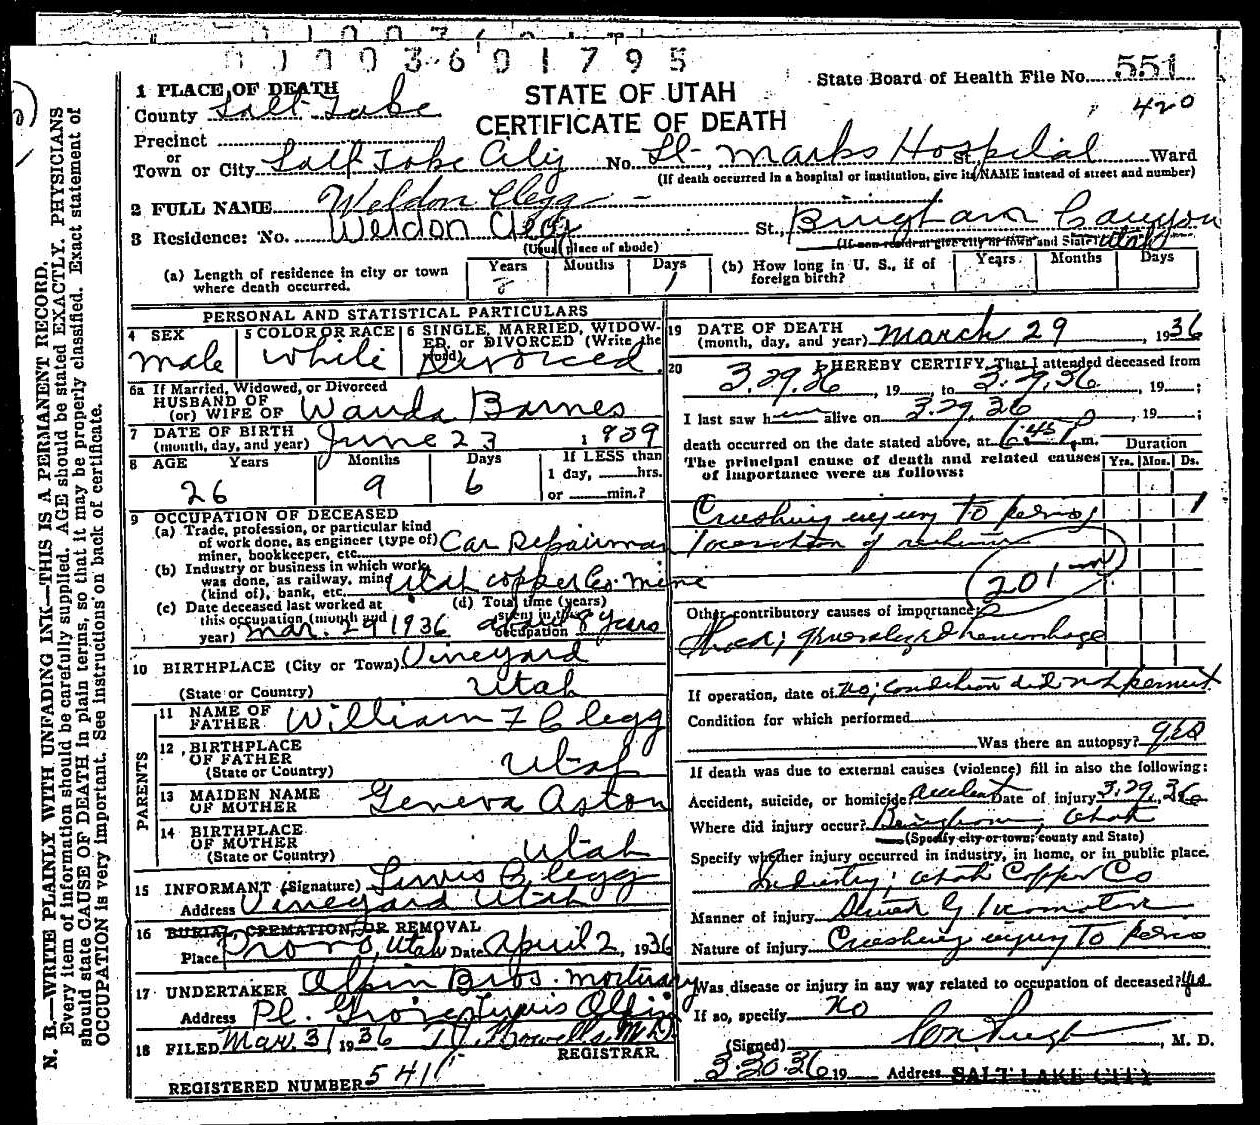 0 1 0 0 3 6 0 1 7 9 5
STATE OF UTAH
CERTIFICATE OF DEATH
State Board of Health File No. 551
420
1 PLACE OF DEATH
County Salt Lake
Precinct
or
Town or City Salt Lake City No. St. Marks Hospital St., Ward
(If death occurred in a hospital or institution, give its NAME instead of street and number)
2 FULL NAME Weldon Clegg
3 Residence: No. Weldon Clegg St., Bingham Canyon Utah
(Usual place of abode) (If non-resident give city or town and State)
(a) Length of residence in city or town where death occurred. Years Months Days 1
(b) How long in U. S., if of foreign birth? Years Months Days
PERSONAL AND STATISTICAL PARTICULARS
4 SEX male
5 COLOR OR RACE white
6 SINGLE, MARRIED, WIDOWED, or DIVORCED (Write the word) Divorced
6a If Married, Widowed, or Divorced
HUSBAND OF
(or) WIFE OF Wanda Barnes
7 DATE OF BIRTH
(month, day, and year) June 23 1909
8 AGE Years 26 Months 9 Days 6 If LESS than 1 day, hrs. or min.?
9 OCCUPATION OF DECEASED
(a) Trade, profession, or particular kind
of work done, as engineer (type of)
miner, bookkeeper, etc. Car Repairman
(b) Industry or business in which work
was done, as railway, mine
(kind of), bank, etc. Utah Copper Co. mine
(c) Date deceased last worked at
this occupation (month and
year) Mar. 29 1936
(d) Total time (years)
spent in this
occupation about 8 years
10 BIRTHPLACE (City or Town) Vineyard
(State or Country) Utah
PARENTS
11 NAME OF FATHER William F Clegg
12 BIRTHPLACE OF FATHER
(State or Country) Utah
13 MAIDEN NAME OF MOTHER Geneva Aston
14 BIRTHPLACE OF MOTHER
(State or Country) Utah
15 INFORMANT (Signature) Lewis Clegg
Address Vineyard Utah
16 BURIAL, CREMATION, OR REMOVAL
Place Provo, Utah Date April 2, 1936
17 UNDERTAKER Olpin Bros. mortuary
Address Pl. Grove Olpin
18 FILED Mar. 31 1936 M.D.
REGISTRAR.
REGISTERED NUMBER 541
19 DATE OF DEATH
(month, day, and year) March 29, 1936
20 I HEREBY CERTIFY, That I attended deceased from
3.29.36, 19 to 3.29.36, 19 ;
I last saw him alive on 3.29.36, 19 ;
death occurred on the date stated above, at 6:45 P m.
The principal cause of death and related causes
of importance were as follows:
Duration
Yrs. Mos. Ds.
Crushing injury to pelvis 1
laceration of
201
Other contributory causes of importance:
Shock; generalized hemorrhage
If operation, date of no; condition did not permit
Condition for which performed
Was there an autopsy? yes
If death was due to external causes (violence) fill in also the following:
Accident, suicide, or homicide? accident Date of injury 3.29., 36
Where did injury occur? Bingham, Utah
(Specify city or town, county and State)
Specify whether injury occurred in industry, in home, or in public place.
Industry; Utah Copper Co
Manner of injury by locomotive
Nature of injury Crushing injury to pelvis
Was disease or injury in any way related to occupation of deceased? yes
If so, specify no
(Signed) , M. D.
3.30.36 19 Address SALT LAKE CITY
N. B.—WRITE PLAINLY WITH UNFADING INK—THIS IS A PERMANENT RECORD.
Every item of information should be carefully supplied. AGE should be stated EXACTLY. PHYSICIANS
should state CAUSE OF DEATH in plain terms, so that it may be properly classified. Exact statement of
OCCUPATION is very important. See instructions on back of certificate.